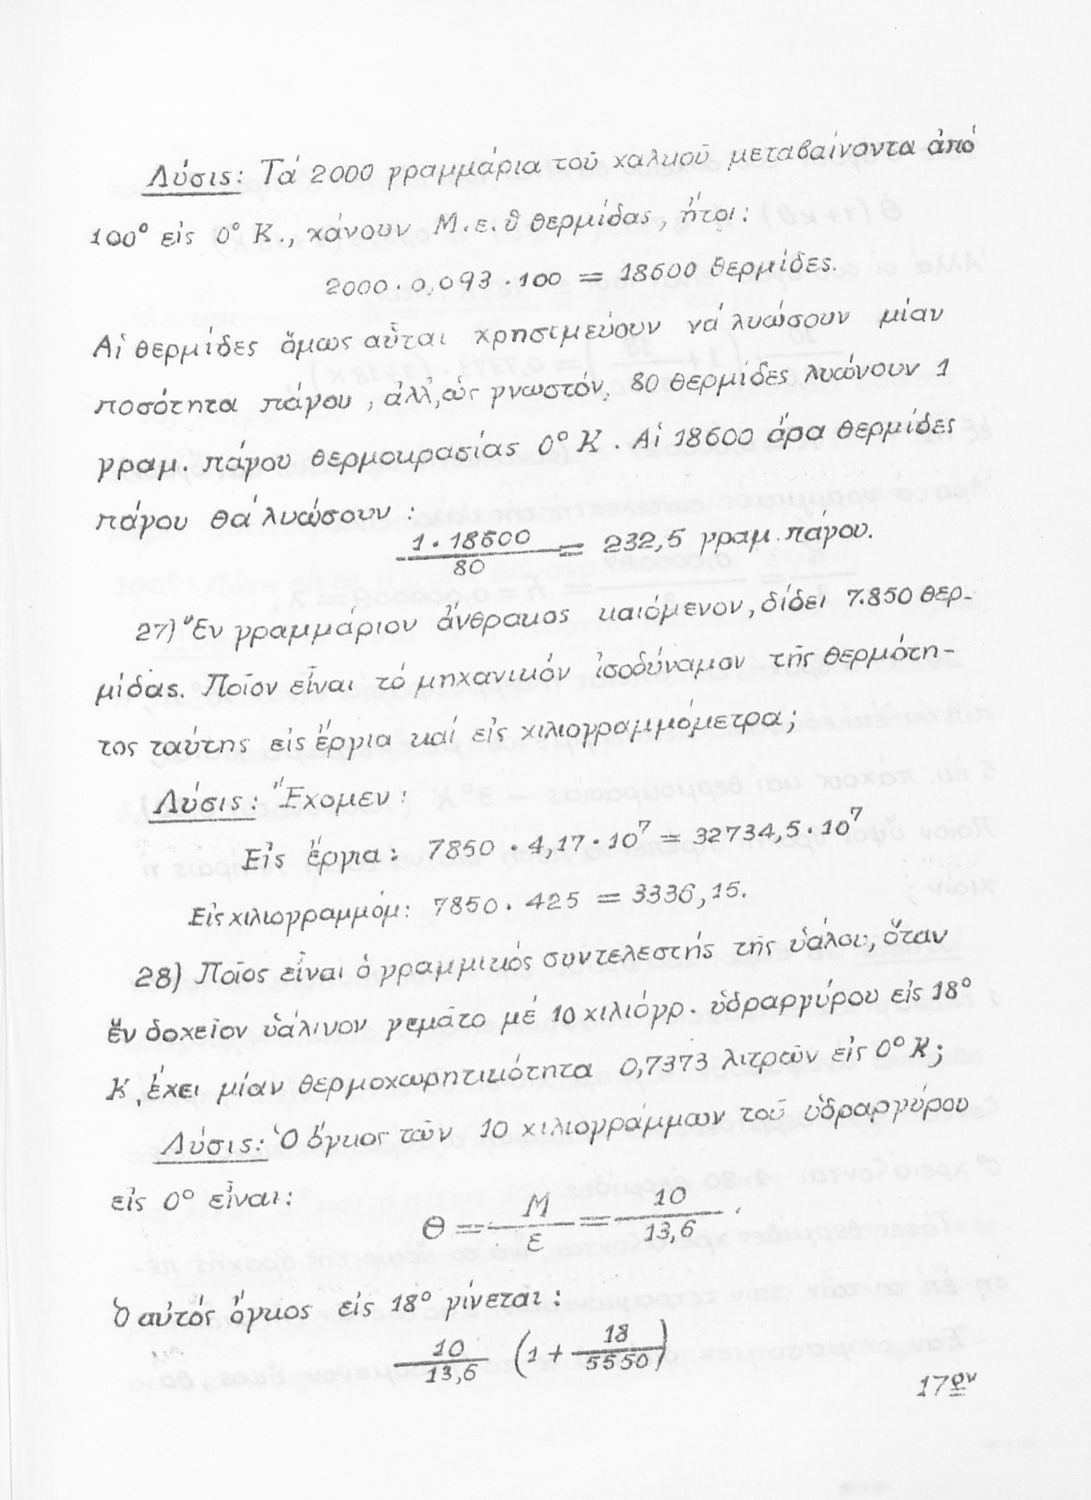 Λύσις: Τά 2000 γραμμάρια τοῦ χαλκοῦ μεταβαίνοντα ἀπό
100° εἰς 0° Κ., χάνουν Μ.ε.θ θερμίδας, ἤτοι:
2000·0,093·100 = 18600 θερμίδες.
Αἱ θερμίδες ὅμως αὗται χρησιμεύουν νά λυώσουν μίαν
ποσότητα πάγου, ἀλλ, ὡς γνωστόν, 80 θερμίδες λυώνουν 1
γραμ. πάγου θερμοκρασίας 0° Κ. Αἱ 18600 ἄρα θερμίδες
πάγου θά λυώσουν:
1·18600 / 80 = 232,5 γραμ. πάγου.
27) Ἕν γραμμάριον ἄνθρακος καιόμενον, δίδει 7.850 θερ-
μίδας. Ποῖον εἶναι τό μηχανικόν ἰσοδύναμον τῆς θερμότη-
τος ταύτης εἰς ἔργια καί εἰς χιλιογραμμόμετρα;
Λύσις: Ἔχομεν:
Εἰς ἔργια: 7850 · 4,17·10⁷ = 32734,5·10⁷
Εἰς χιλιογραμμόμ: 7850· 425 = 3336,15.
28) Ποῖος εἶναι ὁ γραμμικός συντελεστής τῆς ὑάλου, ὅταν
ἕν δοχεῖον ὑάλινον γεμᾶτο μέ 10 χιλιόγρ. ὑδραργύρου εἰς 18°
Κ, ἔχει μίαν θερμοχωρητικότητα 0,7373 λιτρῶν εἰς 0° Κ;
Λύσις: Ὁ ὄγκος τῶν 10 χιλιογράμμων τοῦ ὑδραργύρου
εἰς 0° εἶναι:
Θ = Μ / ε = 10 / 13,6.
Ὁ αὐτός ὄγκος εἰς 18° γίνεται:
10 / 13,6 (1 + 18 / 5550)
17ον